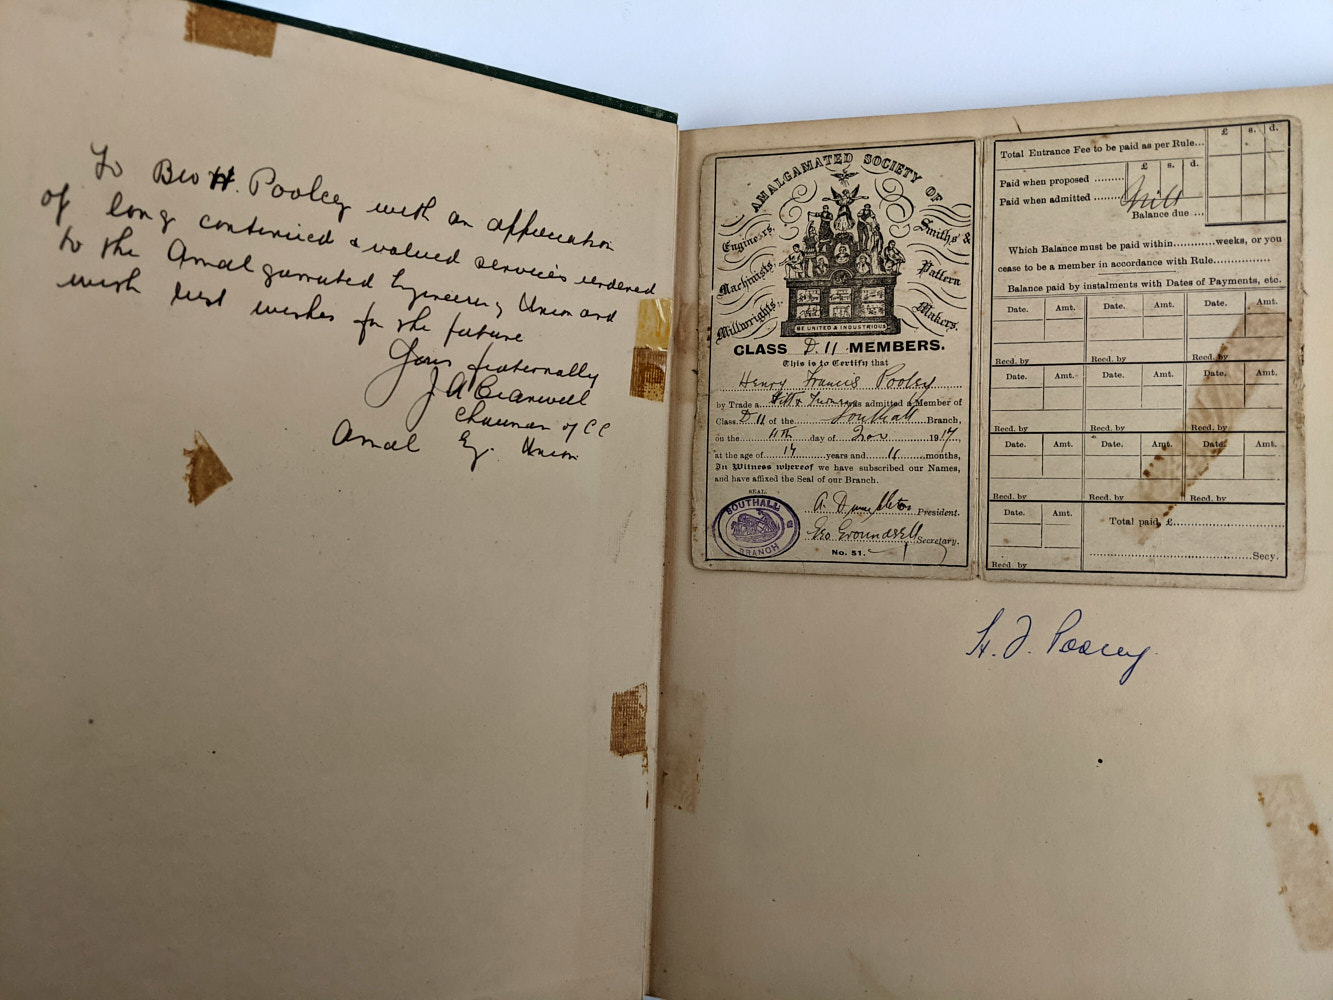 To Bro H. Pooley with an appreciation
of long continued & valued services rendered
to the Amalgamated Engineering Union and
with best wishes for the future
Yours fraternally
J A
Chairman of CC
Amal Eg. Union
AMALGAMATED SOCIETY OF
Engineers,
Machinists,
Millwrights,
Smiths' &
Pattern
Makers.
BE UNITED & INDUSTRIOUS
CLASS D.11 MEMBERS.
This is to Certify that
Henry Francis Pooley
by Trade a Fitt & Turner was admitted a Member of
Class D 11 of the Southall Branch,
on the 11th day of Nov 1917,
at the age of 17 years and 11 months,
In Witness whereof we have subscribed our Names,
and have affixed the Seal of our Branch.
SEAL:
SOUTHALL
BRANCH
President.
Geo Groundsell Secretary.
No. 51.
£ s. d.
Total Entrance Fee to be paid as per Rule...
£ s. d.
Paid when proposed .........
Paid when admitted ...... Nill
Balance due ...
Which Balance must be paid within............weeks, or you
cease to be a member in accordance with Rule................
Balance paid by instalments with Dates of Payments, etc.
Date. Amt. Date. Amt. Date. Amt.
Recd. by Recd. by Recd. by
Date. Amt. Date. Amt. Date. Amt.
Recd. by Recd. by Recd. by
Date. Amt. Date. Amt. Date. Amt.
Recd. by Recd. by Recd. by
Date. Amt. Total paid, £..............................
Secy.
Recd by
H. F. Pooley